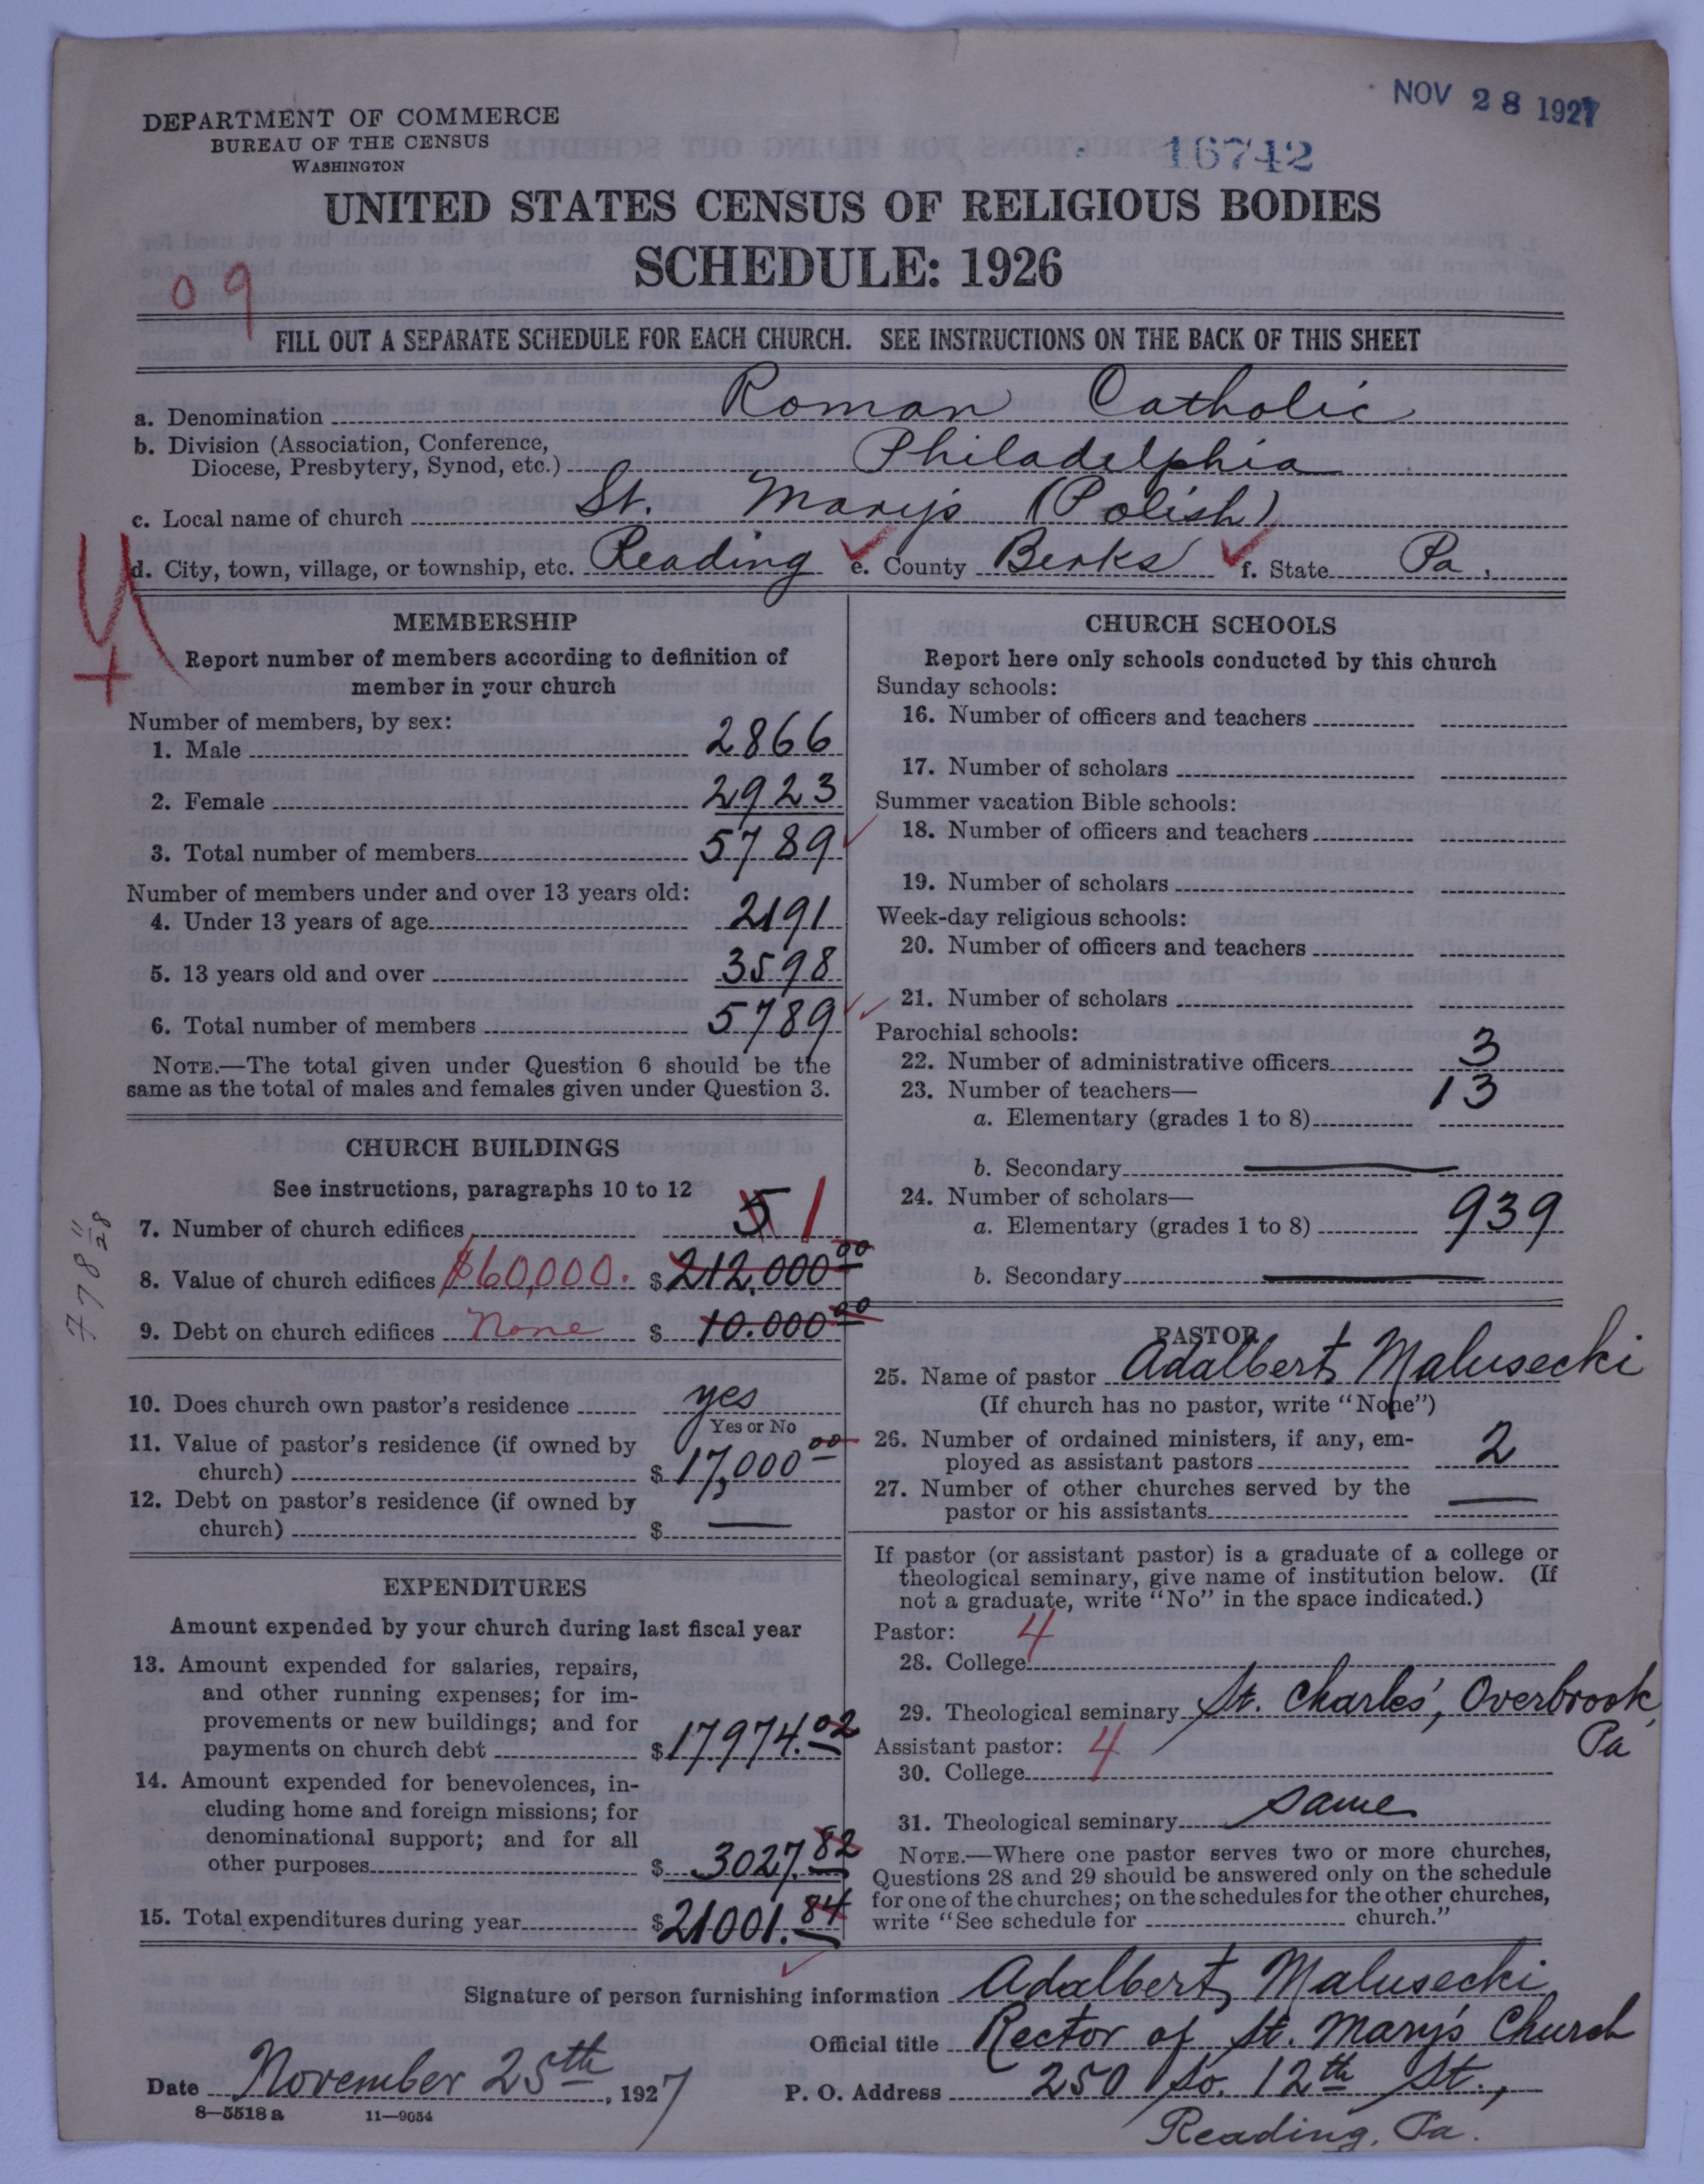 NOV 28 1927
DEPARTMENT OF COMMERCE
BUREAU OF THE CENSUS
WASHINGTON
16742
UNITED STATES CENSUS OF RELIGIOUS BODIES
SCHEDULE: 1926
09
FILL OUT A SEPARATE SCHEDULE FOR EACH CHURCH. SEE INSTRUCTIONS ON THE BACK OF THIS SHEET
a. Denomination Roman Catholic
b. Division (Association, Conference,
Diocese, Presbytery, Synod, etc.) Philadelphia
c. Local name of church St. Mary's (Polish)
d. City, town, village, or township, etc. Reading e. County Berks f. State Pa.
MEMBERSHIP
Report number of members according to definition of
member in your church
Number of members, by sex:
1. Male 2866
2. Female 2923
3. Total number of members 5789
Number of members under and over 13 years old:
4. Under 13 years of age 2191
5. 13 years old and over 3598
6. Total number of members 5789
NOTE.—The total given under Question 6 should be the
same as the total of males and females given under Question 3.
CHURCH BUILDINGS
See instructions, paragraphs 10 to 12
7. Number of church edifices 5 1
8. Value of church edifices $60,000. $212,000 00
9. Debt on church edifices None $ 10.000 00
778 11/28
10. Does church own pastor's residence yes
Yes or No
11. Value of pastor's residence (if owned by
church) $17,000 00
12. Debt on pastor's residence (if owned by
church) $ —
EXPENDITURES
Amount expended by your church during last fiscal year
13. Amount expended for salaries, repairs,
and other running expenses; for im-
provements or new buildings; and for
payments on church debt $17974.02
14. Amount expended for benevolences, in-
cluding home and foreign missions; for
denominational support; and for all
other purposes $ 3027.82
15. Total expenditures during year $21001.84
CHURCH SCHOOLS
Report here only schools conducted by this church
Sunday schools:
16. Number of officers and teachers
17. Number of scholars
Summer vacation Bible schools:
18. Number of officers and teachers
19. Number of scholars
Week-day religious schools:
20. Number of officers and teachers
21. Number of scholars
Parochial schools:
22. Number of administrative officers 3
23. Number of teachers—
a. Elementary (grades 1 to 8) 13
b. Secondary —
24. Number of scholars—
a. Elementary (grades 1 to 8) 939
b. Secondary —
PASTOR
25. Name of pastor Adalbert Malusecki
(If church has no pastor, write "None")
26. Number of ordained ministers, if any, em-
ployed as assistant pastors 2
27. Number of other churches served by the
pastor or his assistants —
If pastor (or assistant pastor) is a graduate of a college or
theological seminary, give name of institution below. (If
not a graduate, write "No" in the space indicated.)
Pastor: 4
28. College
29. Theological seminary St. Charles', Overbrook,
Pa
Assistant pastor: 4
30. College
31. Theological seminary same
NOTE.—Where one pastor serves two or more churches,
Questions 28 and 29 should be answered only on the schedule
for one of the churches; on the schedules for the other churches,
write "See schedule for church."
Signature of person furnishing information Adalbert Malusecki
Official title Rector of St. Mary's Church
Date November 25th, 1927 P. O. Address 250 So. 12th St.,
Reading, Pa.
8—5518 a 11—9054